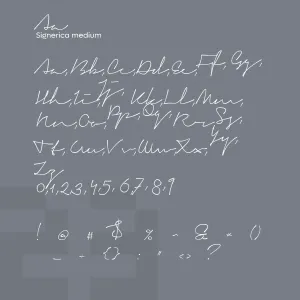 Aa
Signerica medium
Aa, Bb, Cc, Dd, Ee, Ff, Gg,
Hh, Ii, Jj, Kk, Ll, Mm,
Nn, Oo, Pp, Qq, Rr, Ss,
Tt, Uu, Vv, Ww, Xx, Yy,
Zz
0,1,2,3,4,5,6,7,8,9
! @ # $ % ^ & * ()
_ - {} : " <> ?